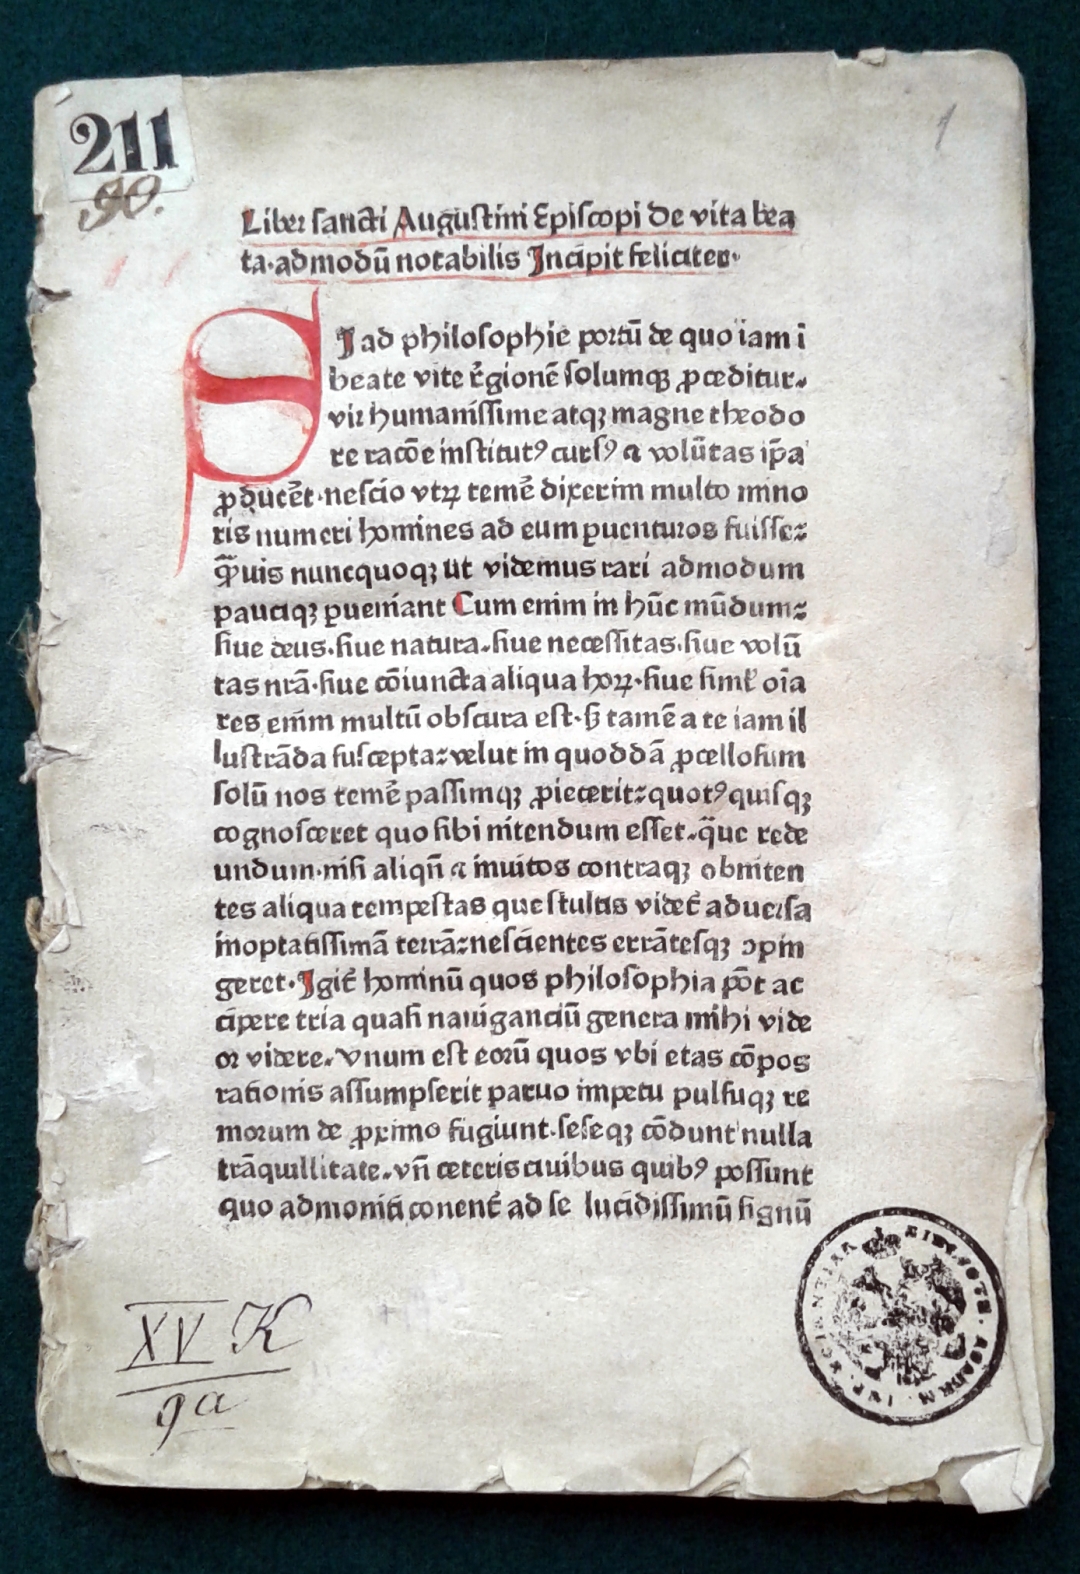 211
90.
1
Liber sancti Augustini Episcopi de vita bea
ta·admodū notabilis Incipit feliciter·
SI ad philosophie portū de quo iam ī
beate vite r̄gionē solumqꝫ ꝓceditur·
vir humanissime atqꝫ magne theodo
re racōe institutꝰ cursꝰ ⁊ volūtas ip̄a
ꝓducēt·nescio vtꝝ temē dixerim multo mino
ris numeri homines ad eum ꝑuenturos fuisse:
Q̄uis nuncquoqꝫ ut videmus rari admodum
pauciqꝫ ꝑueniant Cum enim in hūc mūdum:
siue deus·siue natura·siue necessitas·siue volū
tas nr̄a·siue cōiuncta aliqua hoꝝ·siue siml̓ oīa
res enim multū obscura est·sꝫ tamē a te iam il
lustrāda suscepta:velut in quoddā ꝓcellosum
solū nos temē passimqꝫ ꝓiecerit:quotꝰquisqꝫ
cognosceret quo sibi nitendum esset·q̄ue rede
undum·nisi aliqn̄ ⁊ inuitos contraqꝫ obniten
tes aliqua tempestas que stultis videt̄ aduersa
inoptatissimā terrā:nescientes errātesqꝫ ꝯpin
geret·Igit̄ hominū quos philosophia pōt ac
cipere tria quasi nauiganciū genera mihi vide
or videre·vnum est eorū quos vbi etas cōpos
rationis assumpserit paruo impetu pulsuqꝫ re
morum de ꝓximo fugiunt·seseqꝫ cōdunt nulla
trāquillitate·vn̄ ceteris ciuibus quibꝰ possunt
quo admoniti conent̄ ad se lucidissimū signū
XV K
9a
BIBLIOTH. ACADEM. IMP. SCIANTIAR